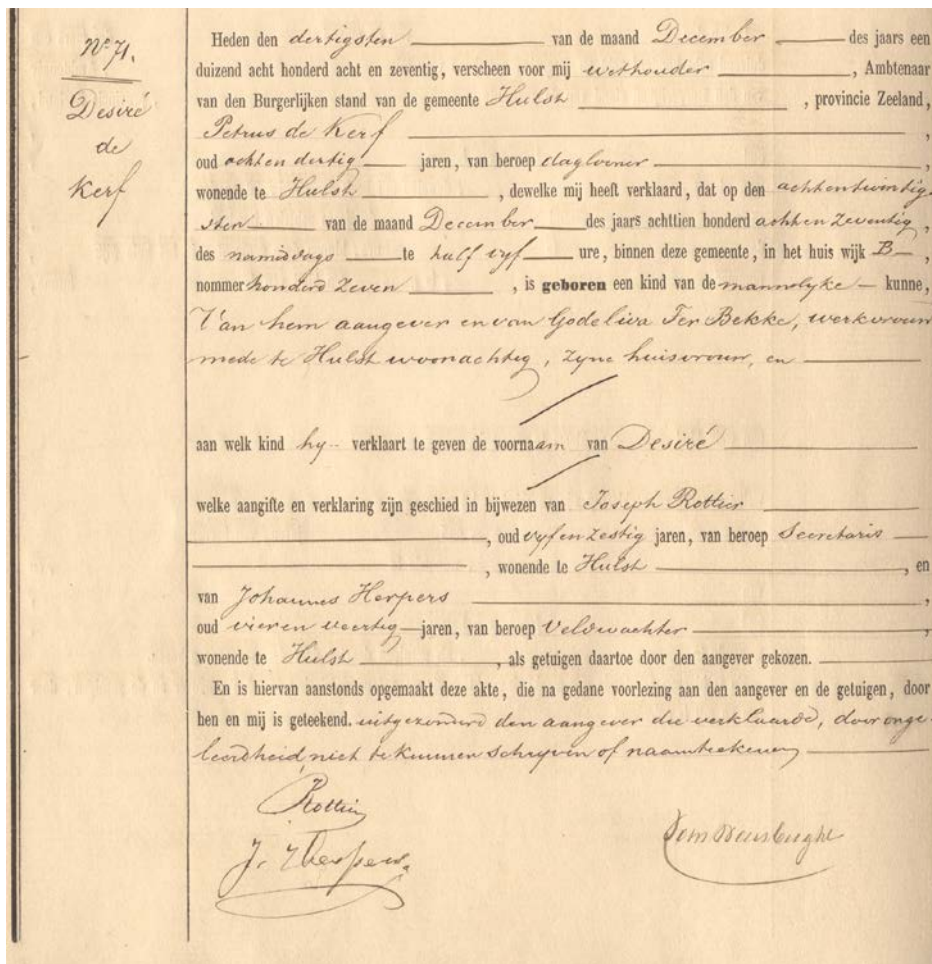 Nº 71.
Desiré
de
Kerf
Heden den dertigsten van de maand December des jaars een
duizend acht honderd acht en zeventig, verscheen voor mij wethouder , Ambtenaar
van den Burgerlijken stand van de gemeente Hulst , provincie Zeeland,
Petrus de Kerf ,
oud acht en dertig jaren, van beroep daglooner ,
wonende te Hulst , dewelke mij heeft verklaard, dat op den achtentwintig-
sten van de maand December des jaars achttien honderd acht en zeventig,
des namiddags te half vyf ure, binnen deze gemeente, in het huis wijk B ,
nommer honderd zeven , is geboren een kind van de mannelyke kunne,
Van hem aangever en van Godeliva Ter Bekke, werkvrouw
mede te Hulst woonachtig, zyne huisvrouw, en
aan welk kind hy verklaart te geven de voornaam van Desiré
welke aangifte en verklaring zijn geschied in bijwezen van Joseph Rottier
, oud vyf en zestig jaren, van beroep Secretaris
, wonende te Hulst , en
van Johannes Herpers ,
oud vier en veertig jaren, van beroep Veldwachter ,
wonende te Hulst , als getuigen daartoe door den aangever gekozen.
En is hiervan aanstonds opgemaakt deze akte, die na gedane voorlezing aan den aangever en de getuigen, door
hen en mij is geteekend. uitgezonderd den aangever die verklaarde, door onge-
leerdheid, niet te kunnen schryven of naamteekenen
Rottier
J. Herpers